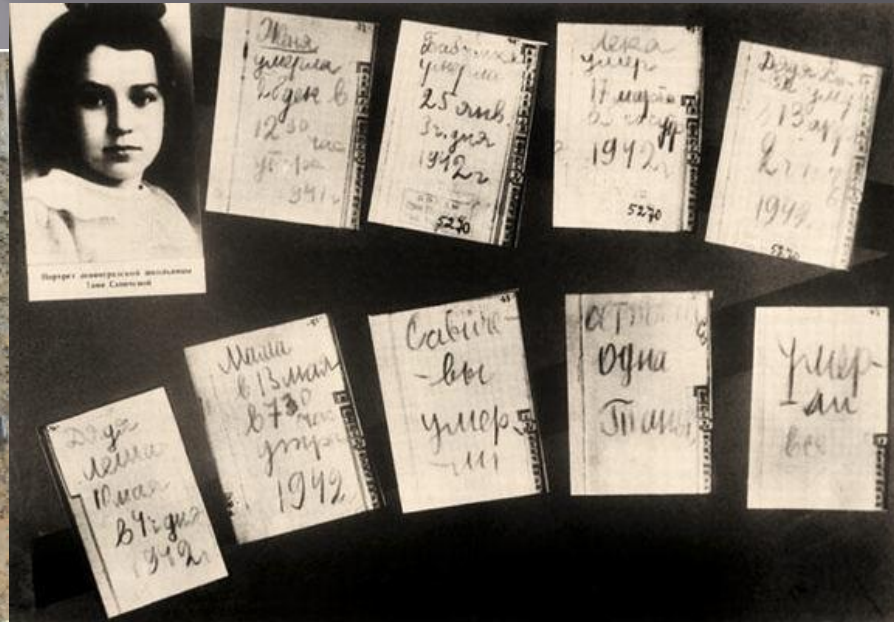 Портрет ленинградской школьницы
Тани Савичевой
Женя
умерла
28 дек в
12 30
час
утра
941г
Бабушка
умерла
25 янв.
3ч. дня
1942 г
5270
Лека
умер
17 марта
1942г
5270
Дядя Ва-
13 апр
2 ч
1942
5270
Дядя
Леша
10 мая
в 4ч дня
1942г
Мама
в 13 мая
в 7 30
час
утра
1942
Савиче-
-вы
умер
одна
Таня
умер-
-ли
все